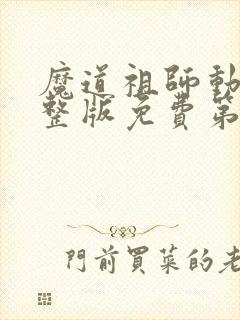 魔道祖師動
整版免費第
門前買菜的老